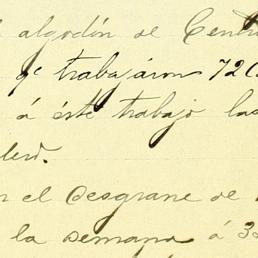 algodón de Centr
qe trabajáron 720
á éste trabajo las
lerd.
n el Desgrane de
la semana á 3